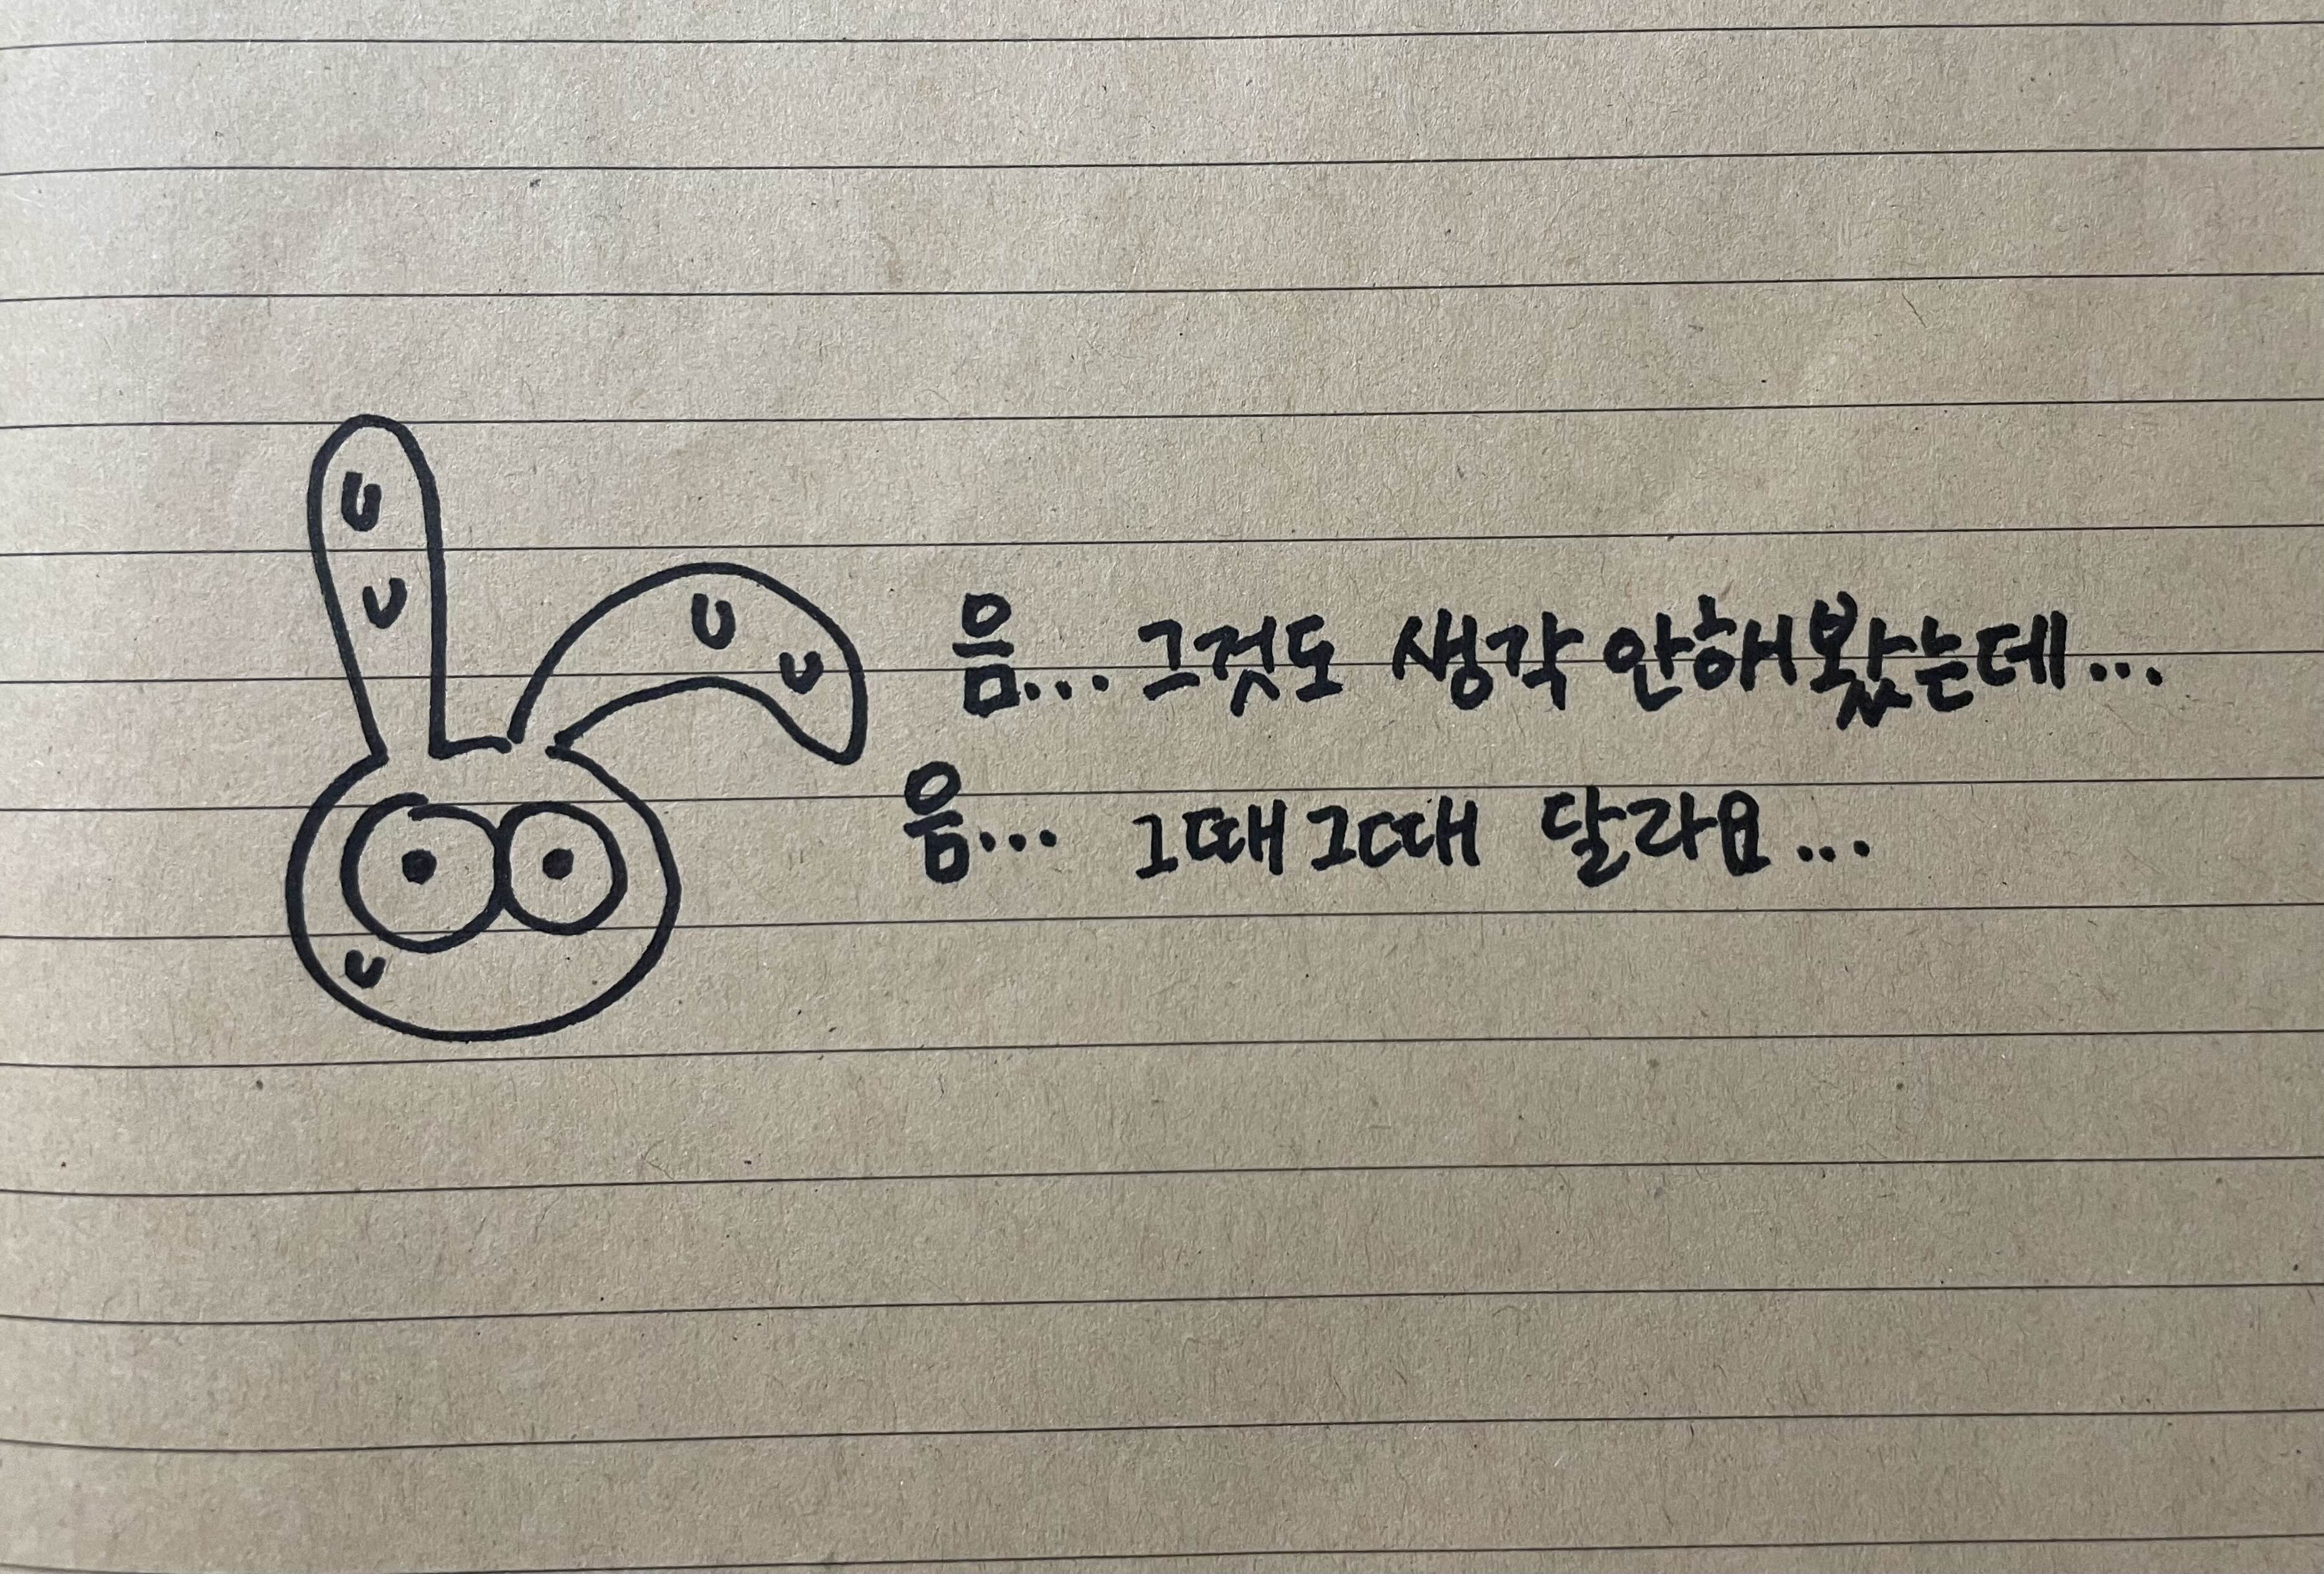 음... 그것도 생각 안해봤는데...
음... 그때그때 달라요...